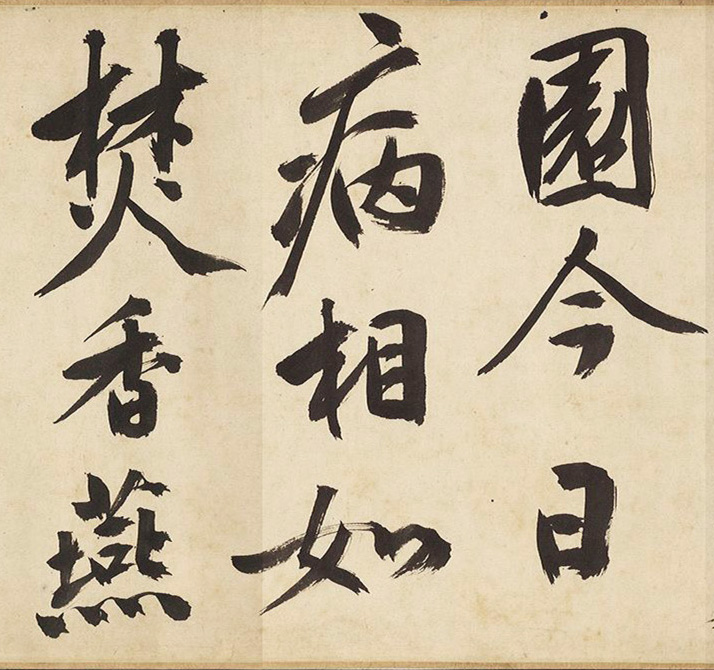 園今日
病相如
焚香燕